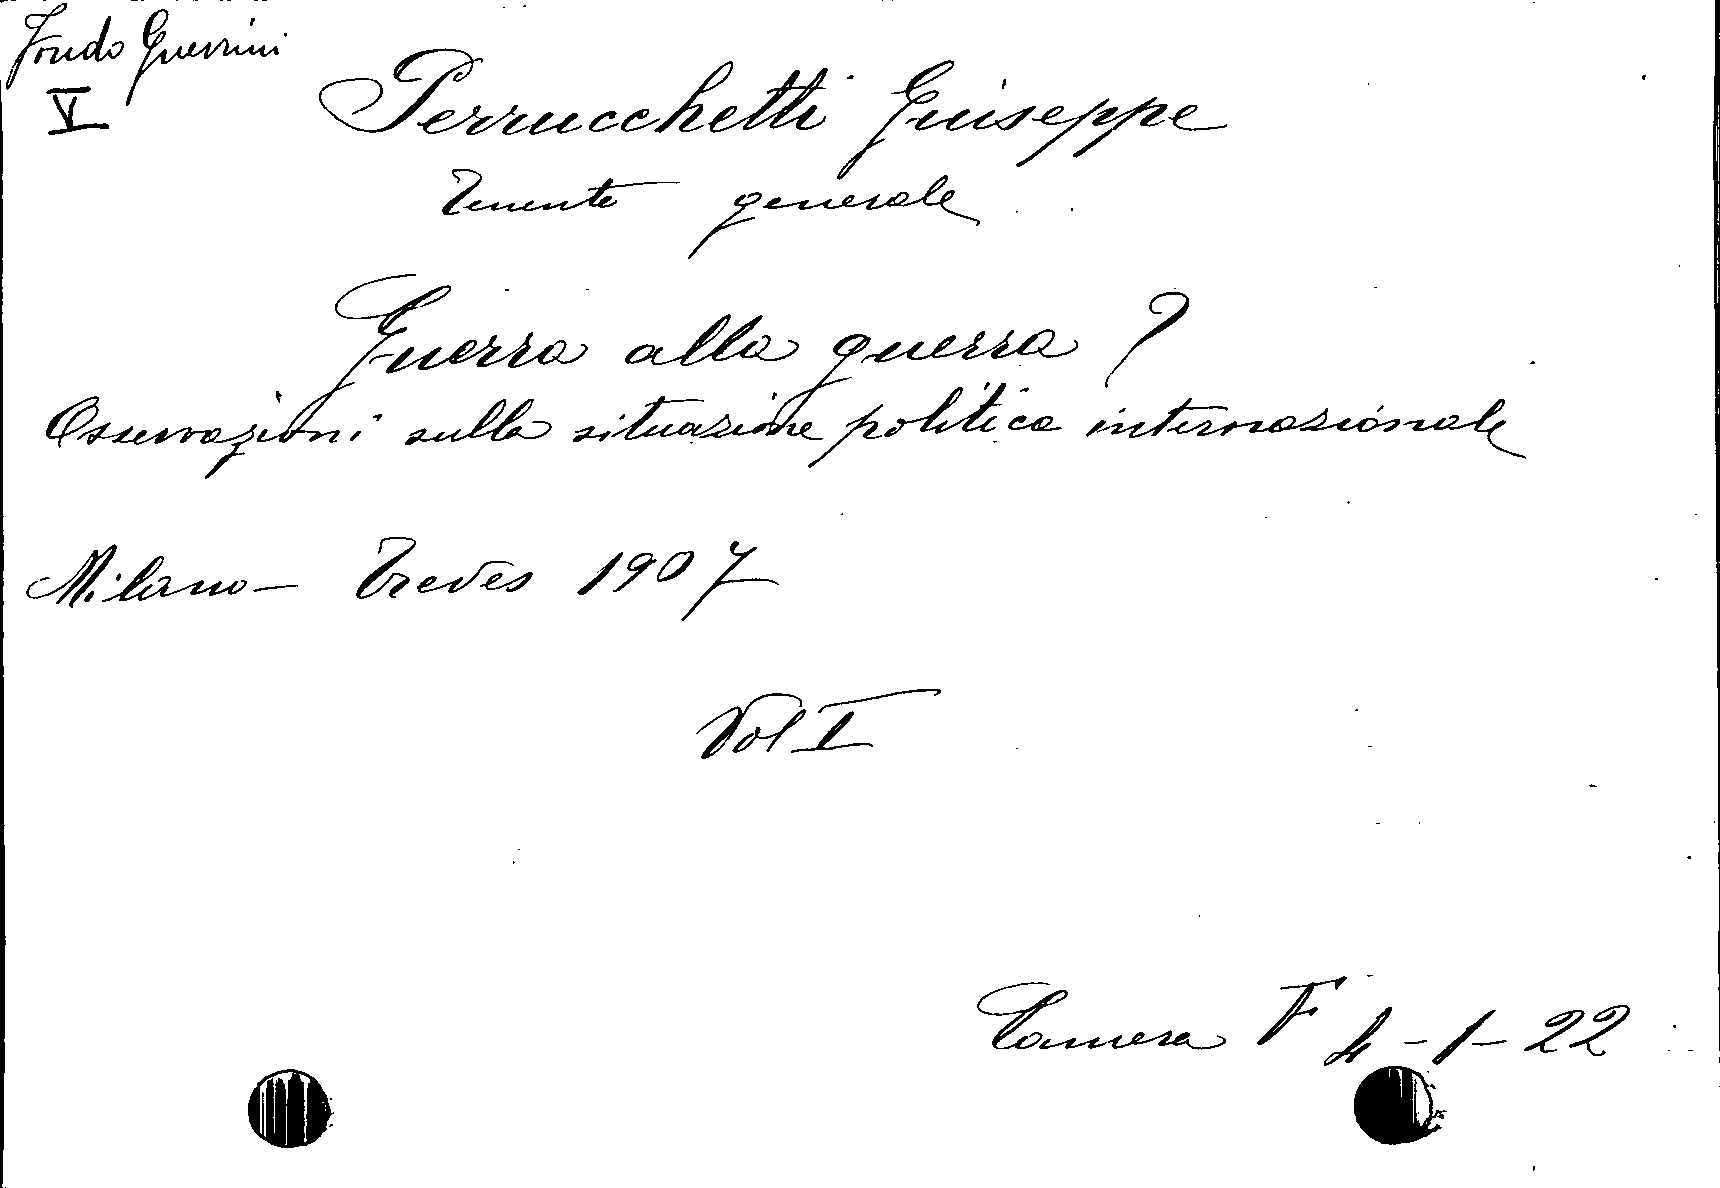 Fondo Guerrini
V
Perrucchetti Giuseppe
Tenente generale
Guerra alla guerra ?
Osservazioni sulla situazione politica internazionale
Milano - Treves 1907
Vol I
Camera F 4-1-22